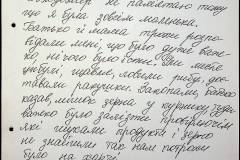 не памятаю тому
що я була зовсім маленька.
Батько й мама трохи розпо-
відали мені, що було дуже важ-
ко, нічого було їсти. Їли
цибулі, щавель, ловили рибу, дос-
тавали ракушки. Закопали, батько
казав, мішок зерна у
було залізти
які шукали продукти і зерно
не знайшли так нам потрохи
було на